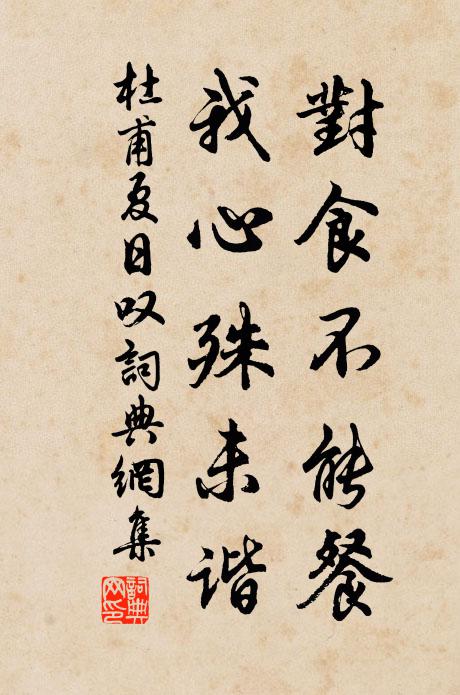 對食不能餐
我心殊未谐
杜甫夏日叹詞典網集
詞典
网印